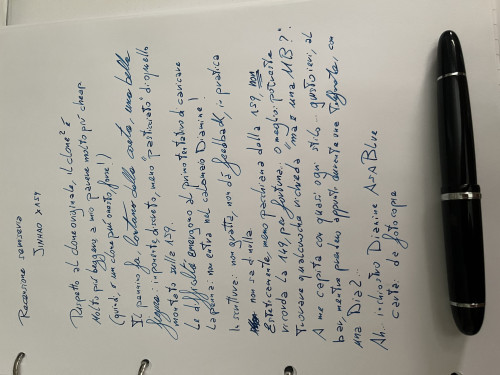 Recensione semiseria
JINHAO X159
Rispetto al clone originale, il clone² è
molto più beggano a mio parere molto più cheap
(quindi, è un clone più onesto forse!)
Il pennino fa lontano dalla carta, una bella
figura: imponente, discreto, meno "pasticciato" di quello
montato sulla 159.
Le difficoltà emergono al primo tentativo di caricare
la penna: non entra nel calamaio Diamine!
In scrittura: non gratta, non dà feedback, in pratica
non sa di nulla.
Esteticamente, meno pacchiana della 159, non
ricorda la 149, per fortuna. O meglio: potreste
trovare qualcuno che vi chieda "ma è una MB?".
A me capita con quasi ogni stilo... giusto ieri, al
bar, mentre prendevo appunti durante una telefonata, con
una Dia2...
Ah... inchiostro Diamine ASA BLUE
carta: da fotocopia